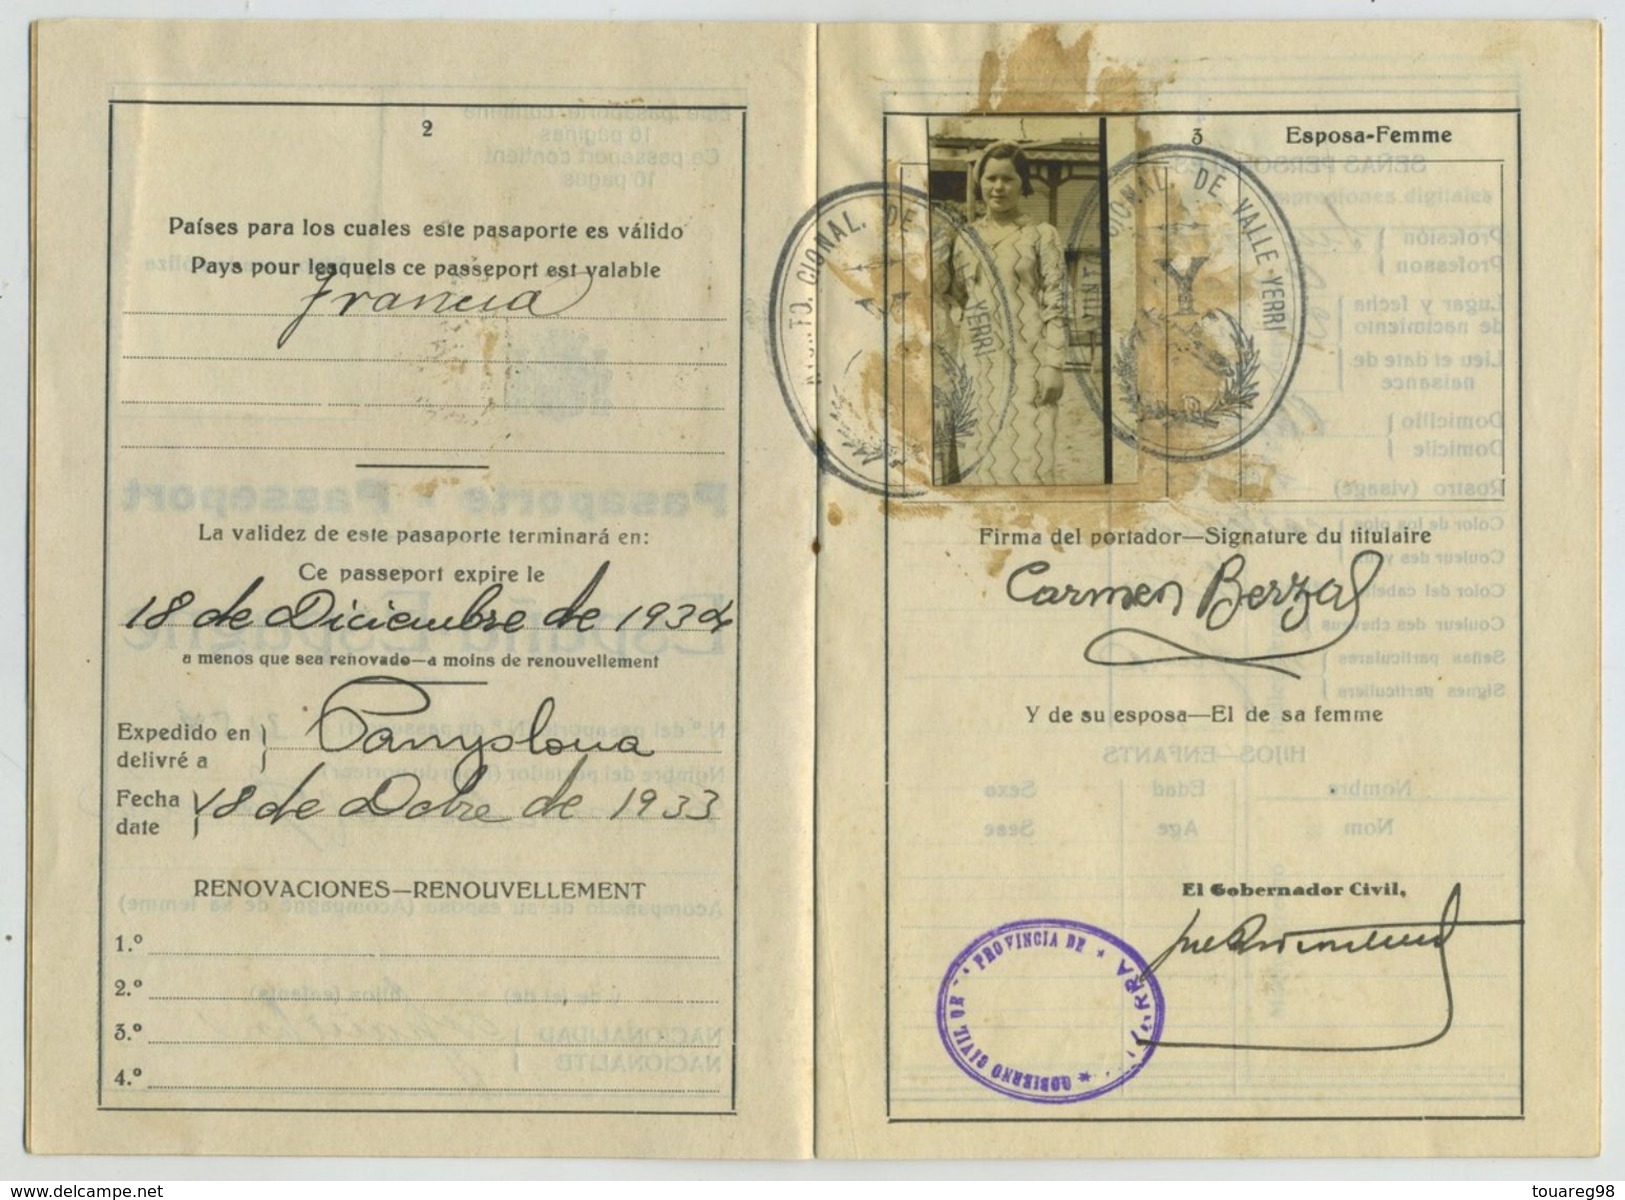 2
Países para los cuales este pasaporte es válido
Pays pour lesquels ce passeport est valable
Francia
La validez de este pasaporte terminará en:
Ce passeport expire le
18 de Diciembre de 1934
a menos que sea renovado—a moins de renouvellement
Expedido en
delivré a
Pamplona
Fecha
date
18 de Dcbre de 1933
RENOVACIONES—RENOUVELLEMENT
1.º
2.º
3.º
4.º
3
Esposa-Femme
CIONAL. DE VALLE YERRI
Firma del portador—Signature du titulaire
Carmen Berzal
Y de su esposa—El de sa femme
El Gobernador Civil,
PROVINCIA DE
GOBIERNO CIVIL
www.delcampe.net
touareg98